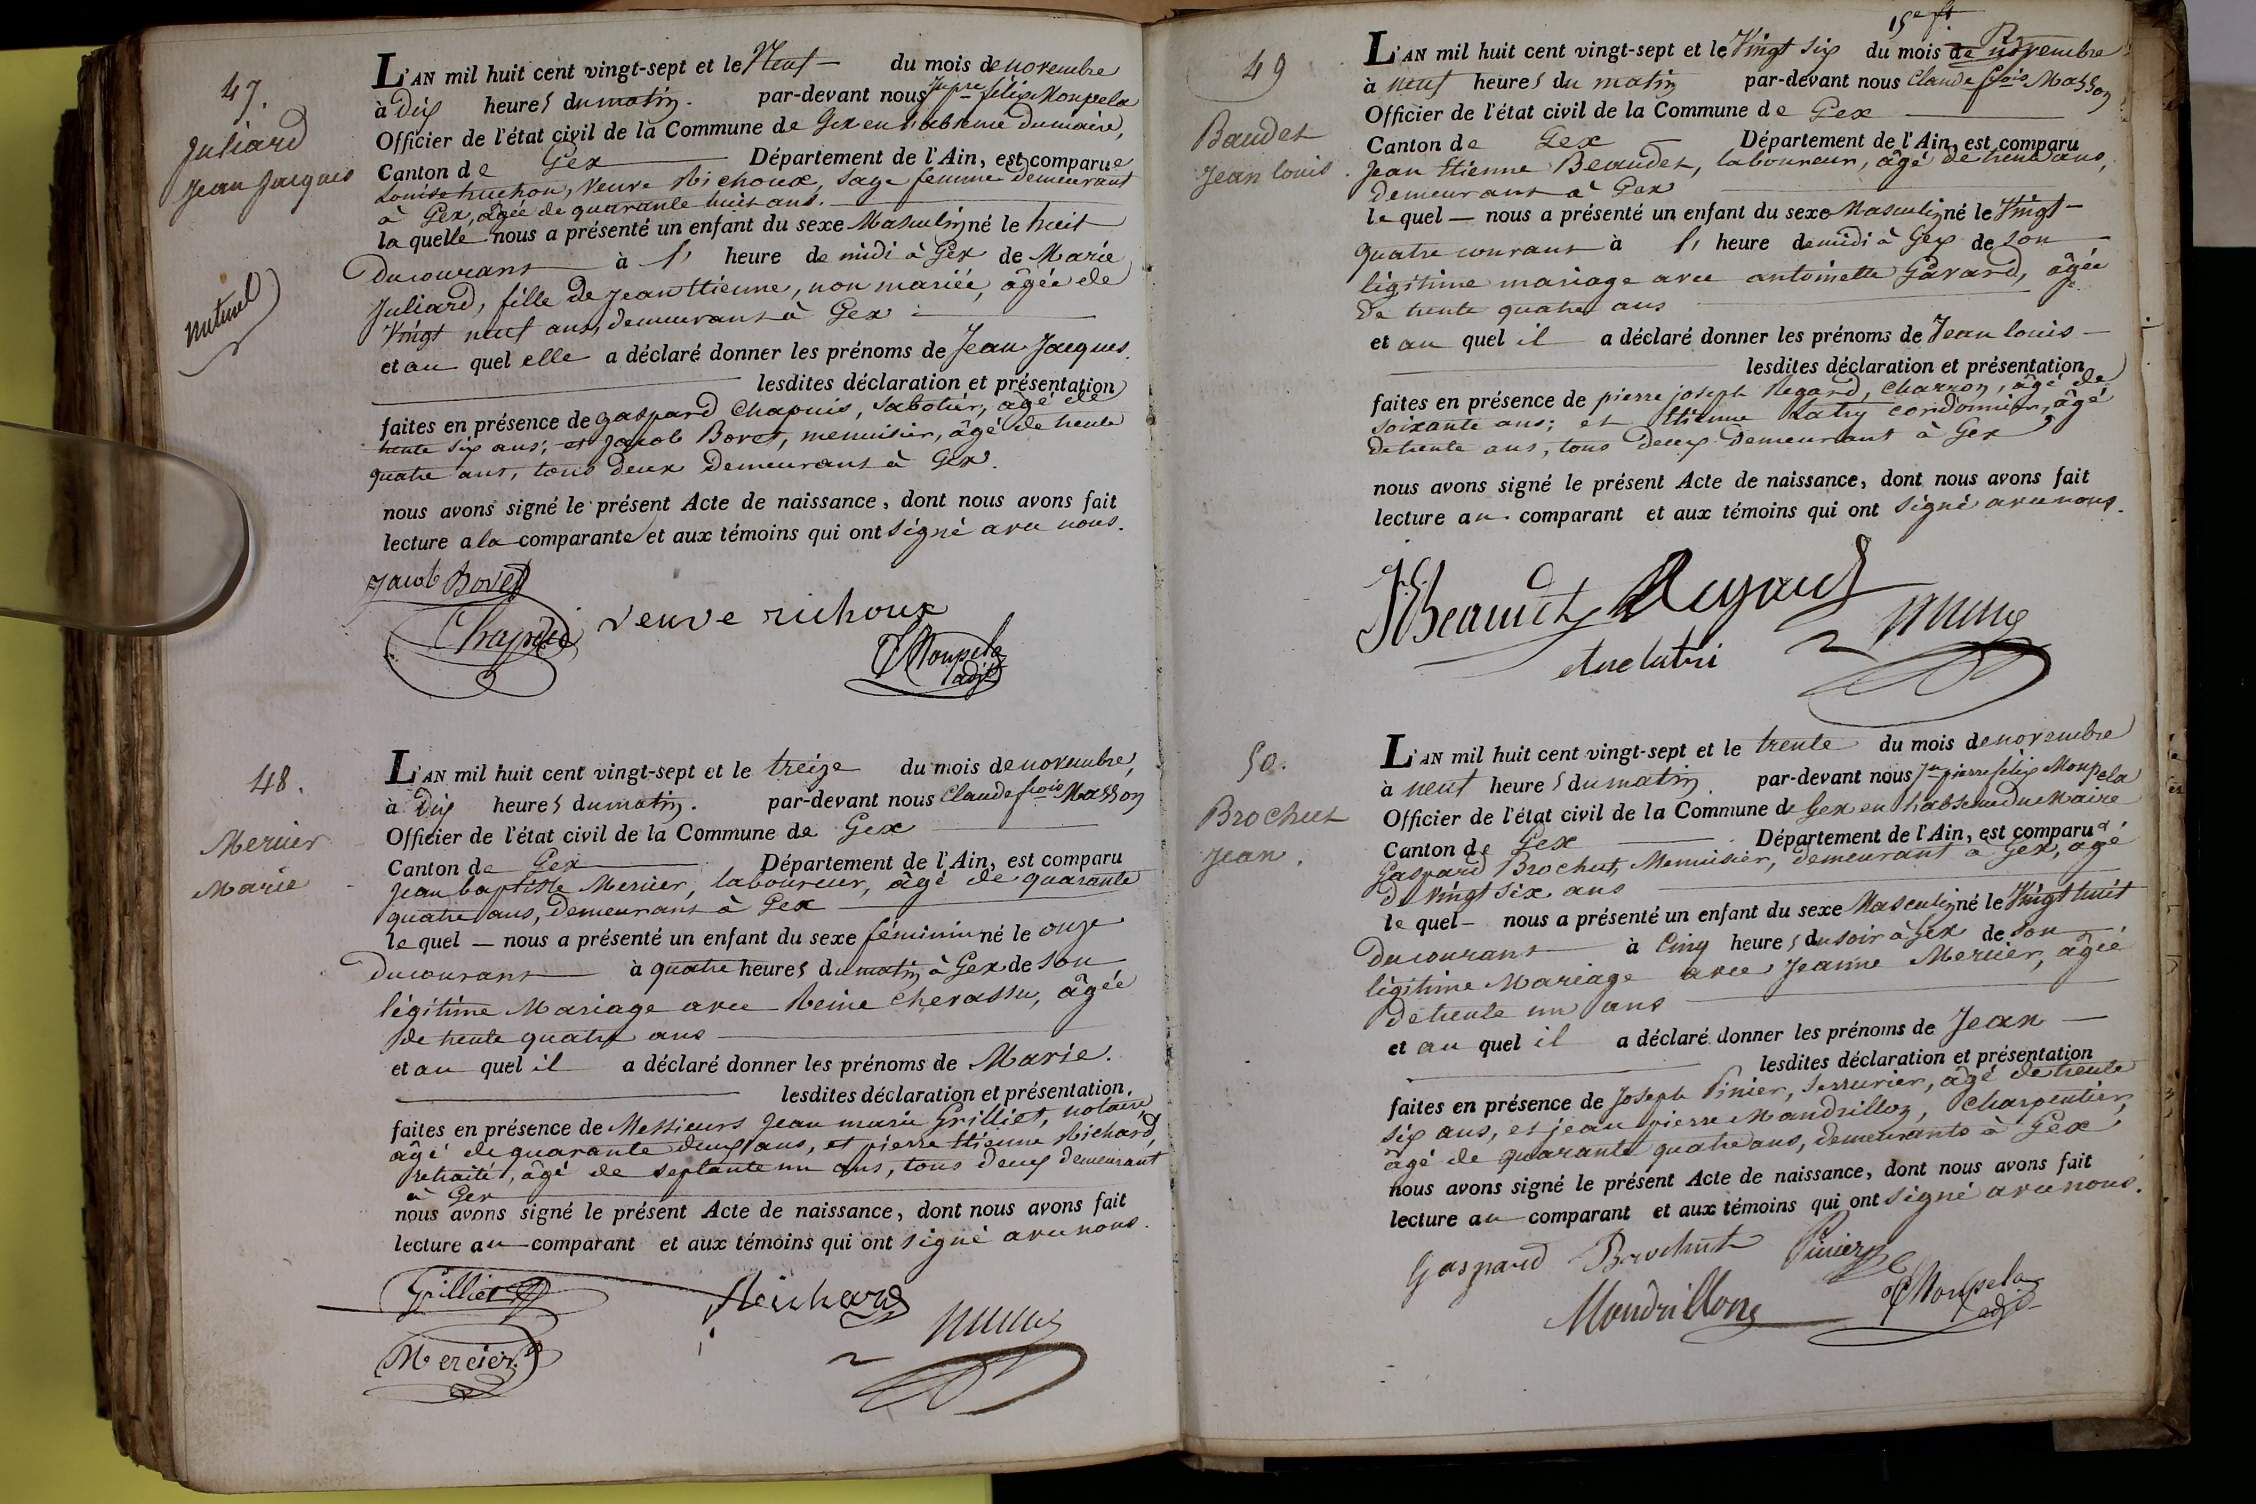 47.
Juliard
Jean Jacques
naturel
L'AN mil huit cent vingt-sept et le Neuf du mois de novembre
à dix heures du matin. par-devant nous Jn pre félix Monpela
Officier de l'état civil de la Commune de Gex en l'absence du maire,
Canton de Gex Département de l'Ain, est comparue
Louise huchon, veuve Richoux, sage femme demeurant
à Gex, âgée de quarante huit ans.
la quelle nous a présenté un enfant du sexe Masculin né le huit
du courant à 1 heure de midi à Gex de Marie
Juliard, fille de Jean Etienne, non mariée, âgée de
Vingt neuf ans, demeurant à Gex
et au quel elle a déclaré donner les prénoms de Jean Jacques.
lesdites déclaration et présentation
faites en présence de gaspard Chapuis, Sabotier, âgé de
trente six ans; et Jacob Bovet, menuisier, âgé de trente
quatre ans, tous deux demeurant à Gex.
nous avons signé le présent Acte de naissance, dont nous avons fait
lecture a la comparante et aux témoins qui ont signé avec nous.
Jacob Bovet
Chapuis veuve richoux
Monpela
adjt
48.
Mercier
Marie
L'AN mil huit cent vingt-sept et le treize du mois de novembre,
à dix heures du matin. par-devant nous Claude frois Masson
Officier de l'état civil de la Commune de Gex
Canton de Gex Département de l'Ain, est comparu
Jean baptiste Mercier, laboureur, âgé de quarante
quatre ans, demeurant à Gex
le quel nous a présenté un enfant du sexe féminin né le onze
du courant à quatre heures du matin à Gex de son
légitime Mariage avec Reine Chevassu, âgée
de trente quatre ans
et au quel il a déclaré donner les prénoms de Marie.
lesdites déclaration et présentation
faites en présence de Messieurs Jean marie Grilliet, notaire,
âgé de quarante deux ans, et pierre Etienne Richard,
retraité, âgé de septante un ans, tous deux demeurant
à Gex
nous avons signé le présent Acte de naissance, dont nous avons fait
lecture au comparant et aux témoins qui ont signé avec nous.
Grilliet Richard
Mercier
49
Baudet
Jean louis.
L'AN mil huit cent vingt-sept et le Vingt six du mois de novembre
à neuf heures du matin par-devant nous Claude frois Masson
Officier de l'état civil de la Commune de Gex
Canton de Gex Département de l'Ain, est comparu
Jean Etienne Beaudet, laboureur, âgé de trente ans,
demeurant à Gex
le quel nous a présenté un enfant du sexe Masculin né le Vingt
quatre courant à 1 heure de midi à Gex de son
légitime mariage avec antoinette Gavard, âgée
de trente quatre ans
et au quel il a déclaré donner les prénoms de Jean louis
lesdites déclaration et présentation
faites en présence de pierre joseph Regard, Charron, âgé de
soixante ans; et Etienne Latry cordonnier, âgé
de trente ans, tous deux demeurant à Gex
nous avons signé le présent Acte de naissance, dont nous avons fait
lecture au comparant et aux témoins qui ont signé avec nous.
Beaudet Regard
50.
Brochut
Jean.
L'AN mil huit cent vingt-sept et le trente du mois de novembre
à neuf heures du matin par-devant nous Jn pierre félix Monpela
Officier de l'état civil de la Commune de Gex en l'absence du Maire
Canton de Gex Département de l'Ain, est comparu
Gaspard Brochut, Menuisier, demeurant à Gex, âgé
de vingt six ans
le quel nous a présenté un enfant du sexe Masculin né le Vingt huit
du courant à Cinq heures du soir à Gex de son
légitime Mariage avec Jeanne Mercier, âgée
de trente un ans
et au quel il a déclaré donner les prénoms de Jean
lesdites déclaration et présentation
faites en présence de Joseph Pinier, serrurier, âgé de trente
six ans, et jean pierre Mandrillon, Charpentier,
âgé de quarante quatre ans, demeurants à Gex
nous avons signé le présent Acte de naissance, dont nous avons fait
lecture au comparant et aux témoins qui ont signé avec nous.
Gaspard Brochut Pinier
Mandrillon Monpela
adjt